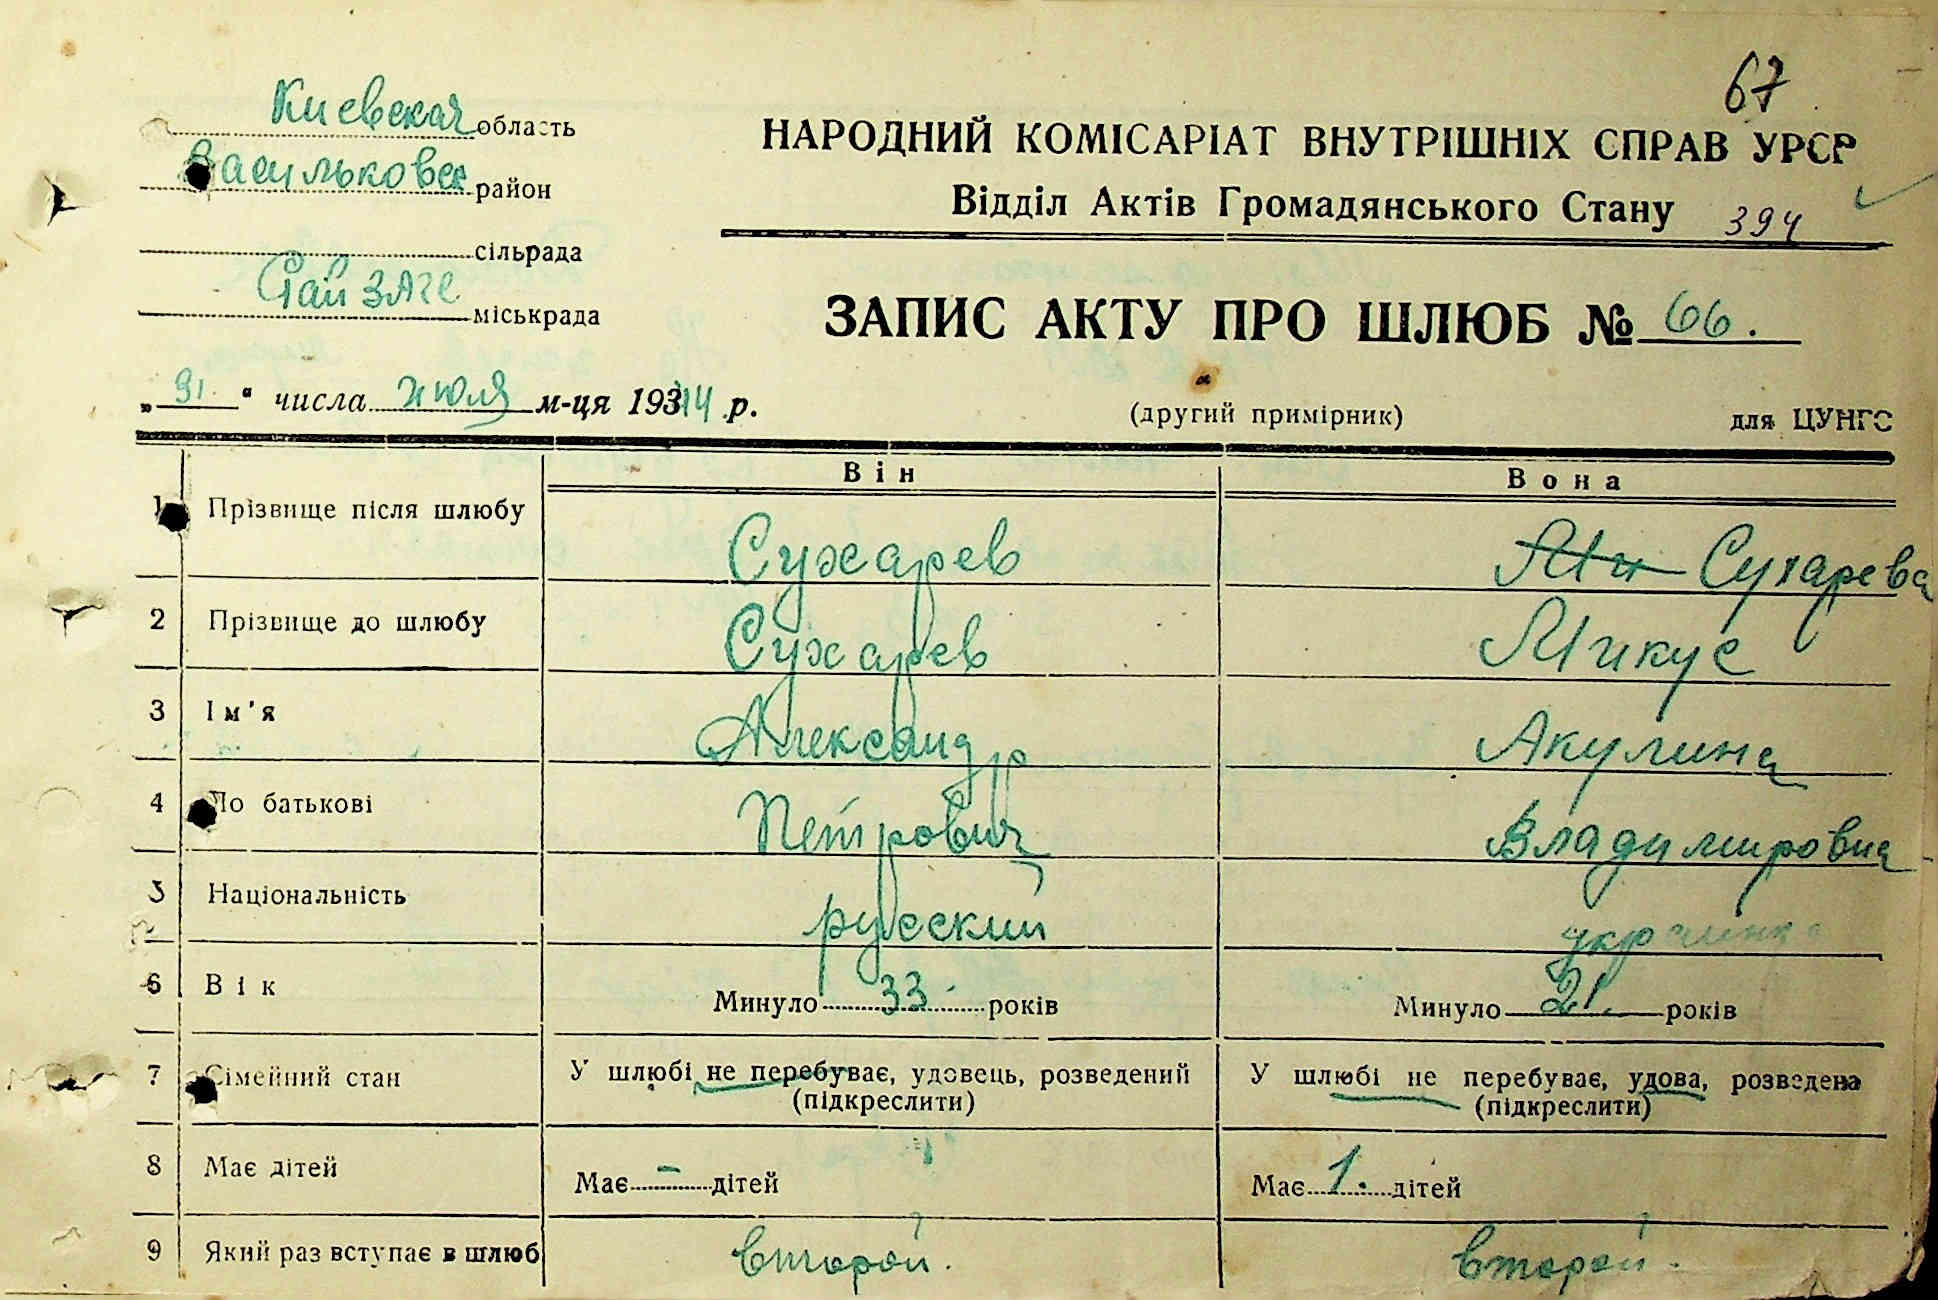 67
Киевская область
НАРОДНИЙ КОМІСАРІАТ ВНУТРІШНІХ СПРАВ УРСР
Васильковск район
Відділ Актів Громадянського Стану 394
сільрада
Рай ЗАГС міськрада
ЗАПИС АКТУ ПРО ШЛЮБ № 66.
„31“ числа июля м-ця 19344 р.
(другий примірник) для ЦУНГО
Він Вона
1 Прізвище після шлюбу Сухарев Ми Сухарева
2 Прізвище до шлюбу Сухарев Микус
3 Ім'я Александр Акулина
4 По батькові Петрович Владимировна
5 Національність русский украинка
6 Вік Минуло 33 років Минуло 21. років
7 Сімейний стан У шлюбі не перебуває, удовець, розведений У шлюбі не перебуває, удова, розведена
(підкреслити) (підкреслити)
8 Має дітей Має – дітей Має 1. дітей
9 Який раз вступає в шлюб второй. второй.